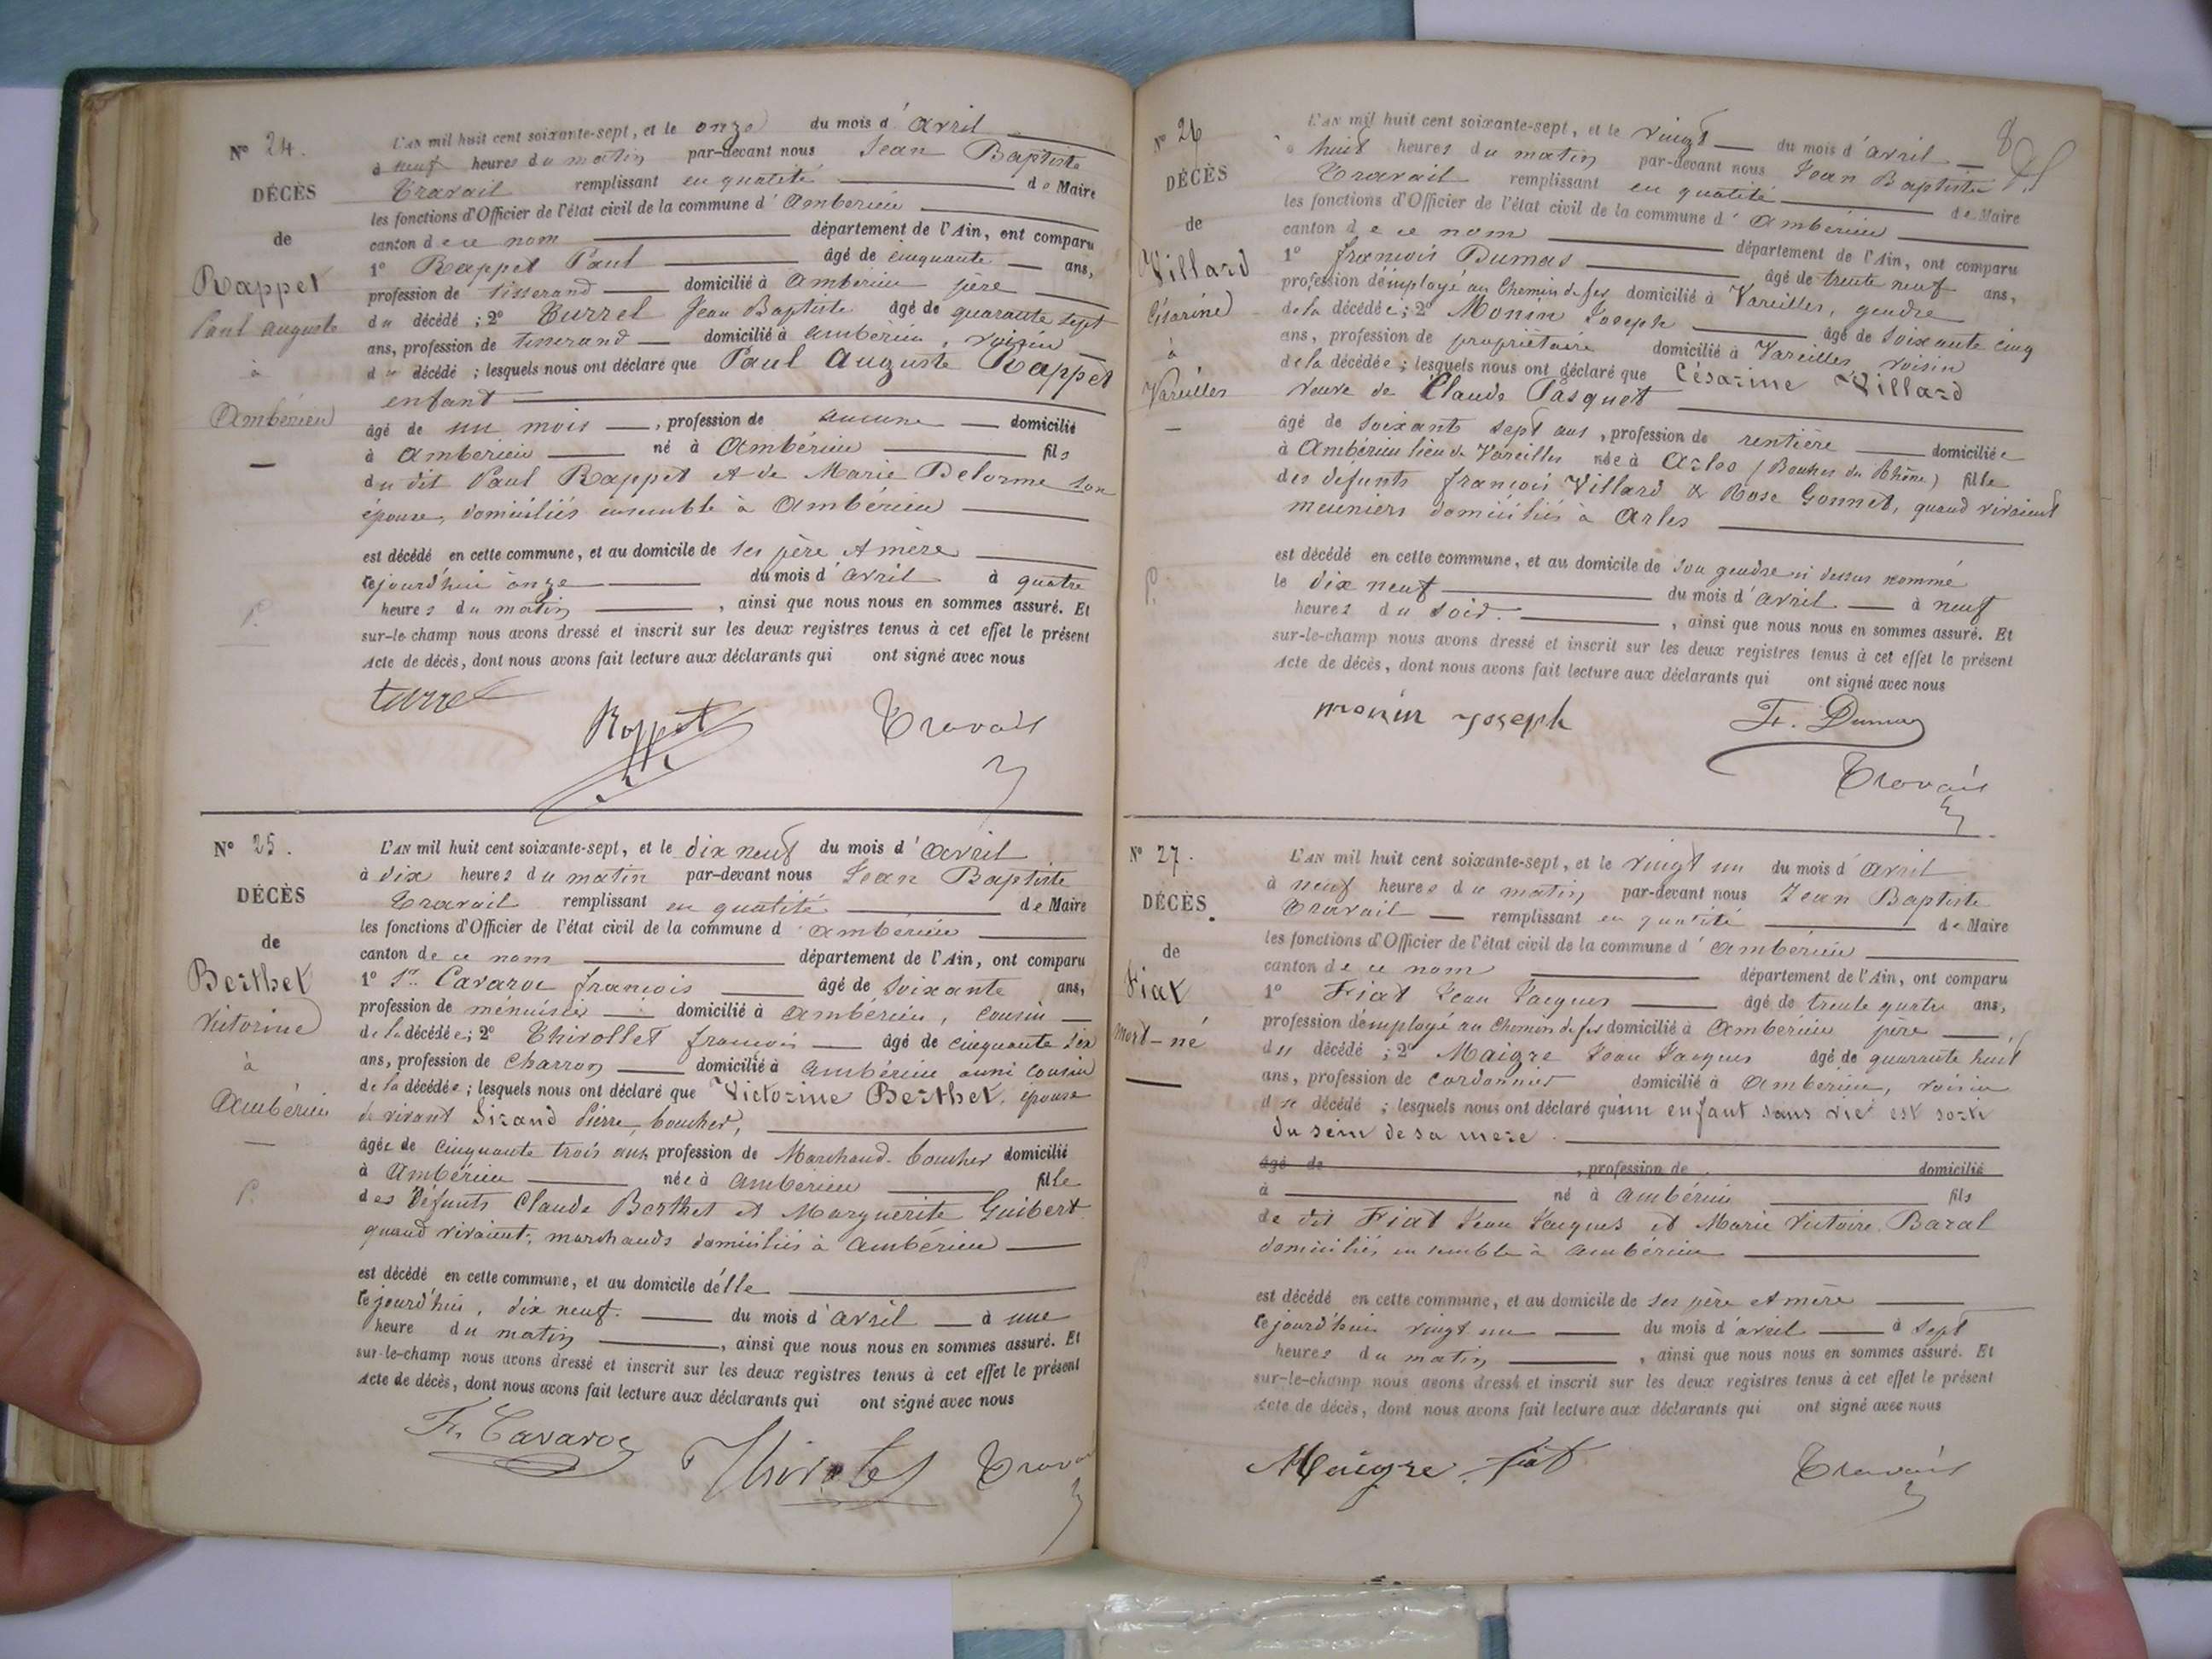 N° 24.
DÉCÈS
de
Rappet
Paul auguste
à
Ambérieu
L'AN mil huit cent soixante-sept, et le onze du mois d'avril
à neuf heures du matin par-devant nous Jean Baptiste
Travail remplissant en qualité de Maire
les fonctions d'Officier de l'état civil de la commune d'Ambérieu
canton de ce nom département de l'Ain, ont comparu
1° Rappet Paul âgé de cinquante ans,
profession de tisserand domicilié à Ambérieu père
du décédé ; 2° Turrel Jean Baptiste âgé de quarante sept
ans, profession de tisserand domicilié à ambérieu, voisin
du décédé ; lesquels nous ont déclaré que Paul Auguste Rappet
enfant
âgé de un mois, profession de aucune domicilié
à Ambérieu né à Ambérieu fils
du dit Paul Rappet et de Marie Delorme son
épouse, domiciliés ensemble à Ambérieu
est décédé en cette commune, et au domicile de ses père et mère
cejourd'hui onze du mois d'avril à quatre
heures du matin, ainsi que nous nous en sommes assuré. Et
sur-le champ nous avons dressé et inscrit sur les deux registres tenus à cet effet le présent
Acte de décès, dont nous avons fait lecture aux déclarants qui ont signé avec nous
turrel
Rappet Travail
N° 25.
DÉCÈS
de
Berthet
Victorine
à
Ambérieu
L'AN mil huit cent soixante-sept, et le dix neuf du mois d'avril
à dix heures du matin par-devant nous Jean Baptiste
Travail remplissant en qualité de Maire
les fonctions d'Officier de l'état civil de la commune d'ambérieu
canton de ce nom département de l'Ain, ont comparu
1° Sr. Cavaroc françois âgé de soixante ans,
profession de ménuisier domicilié à ambérieu, cousin
de la décédée ; 2° Thirollet françois âgé de cinquante six
ans, profession de charron domicilié à ambérieu aussi cousin
de la décédée ; lesquels nous ont déclaré que Victorine Berthet, épouse
de vivant Sirand Pierre, boucher,
âgée de cinquante trois ans, profession de Marchand-boucher domicilié
à Ambérieu née à ambérieu fille
des défunts Claude Berthet et Marguerite Guibert
quand vivaient, marchands domiciliés à ambérieu
est décédé en cette commune, et au domicile d'elle
cejourd'hui, dix neuf. du mois d'avril à une
heure du matin, ainsi que nous nous en sommes assuré. Et
sur-le-champ nous avons dressé et inscrit sur les deux registres tenus à cet effet le présent
Acte de décès, dont nous avons fait lecture aux déclarants qui ont signé avec nous
F. Cavaroc
N° 26
DÉCÈS
de
Villard
Césarine
à
Vareilles
L'AN mil huit cent soixante-sept, et le vingt du mois d'avril
à huit heures du matin par-devant nous Jean Baptiste
Travail remplissant en qualité de Maire
les fonctions d'Officier de l'état civil de la commune d'Ambérieu
canton de ce nom département de l'Ain, ont comparu
1° françois Dumas âgé de trente neuf ans,
profession d'employé au Chemin de fer domicilié à Vareilles, gendre
de la décédée ; 2° Monin Joseph âgé de soixante cinq
ans, profession de propriétaire domicilié à Vareilles, voisin
de la décédée ; lesquels nous ont déclaré que Césarine Villard
veuve de Claude Pasquet
âgé de soixante sept ans, profession de rentière domiciliée
à Ambérieu lieu de Vareilles née à Arles (Bouches du Rhône) fille
des défunts françois Villard & Rose Gonnet, quand vivaient
meuniers domiciliés à Arles
est décédé en cette commune, et au domicile de son gendre ci dessus nommé
le dix neuf du mois d'avril à neuf
heures du soir., ainsi que nous nous en sommes assuré. Et
sur-le-champ nous avons dressé et inscrit sur les deux registres tenus à cet effet le présent
Acte de décès, dont nous avons fait lecture aux déclarants qui ont signé avec nous
monin joseph F. Dumas
Travail
N° 27.
DÉCÈS.
de
Fiat
Mort-né
L'AN mil huit cent soixante-sept, et le vingt un du mois d'avril
à neuf heures du matin par-devant nous Jean Baptiste
Travail remplissant en qualité de Maire
les fonctions d'Officier de l'état civil de la commune d'ambérieu
canton de ce nom département de l'Ain, ont comparu
1° Fiat Jean Jacques âgé de trente quatre ans,
profession d'employé au Chemin de fer domicilié à Ambérieu père
du décédé ; 2° Maigre Jean Jacques âgé de quarante huit
ans, profession de Cordonnier domicilié à Ambérieu, voisin
du décédé ; lesquels nous ont déclaré qu'un enfant sans vie est sorti
du sein de sa mere.
âgé de , profession de domicilié
à né à ambérieu fils
de dit Fiat Jean Jacques et Marie Victoire Baral
domiciliés ensemble à ambérieu
est décédé en cette commune, et au domicile de ses père et mère
cejourd'hui vingt un du mois d'avril à sept
heures du matin, ainsi que nous nous en sommes assuré. Et
sur-le-champ nous avons dressé et inscrit sur les deux registres tenus à cet effet le présent
Acte de décès, dont nous avons fait lecture aux déclarants qui ont signé avec nous
Maigre fiat Travail